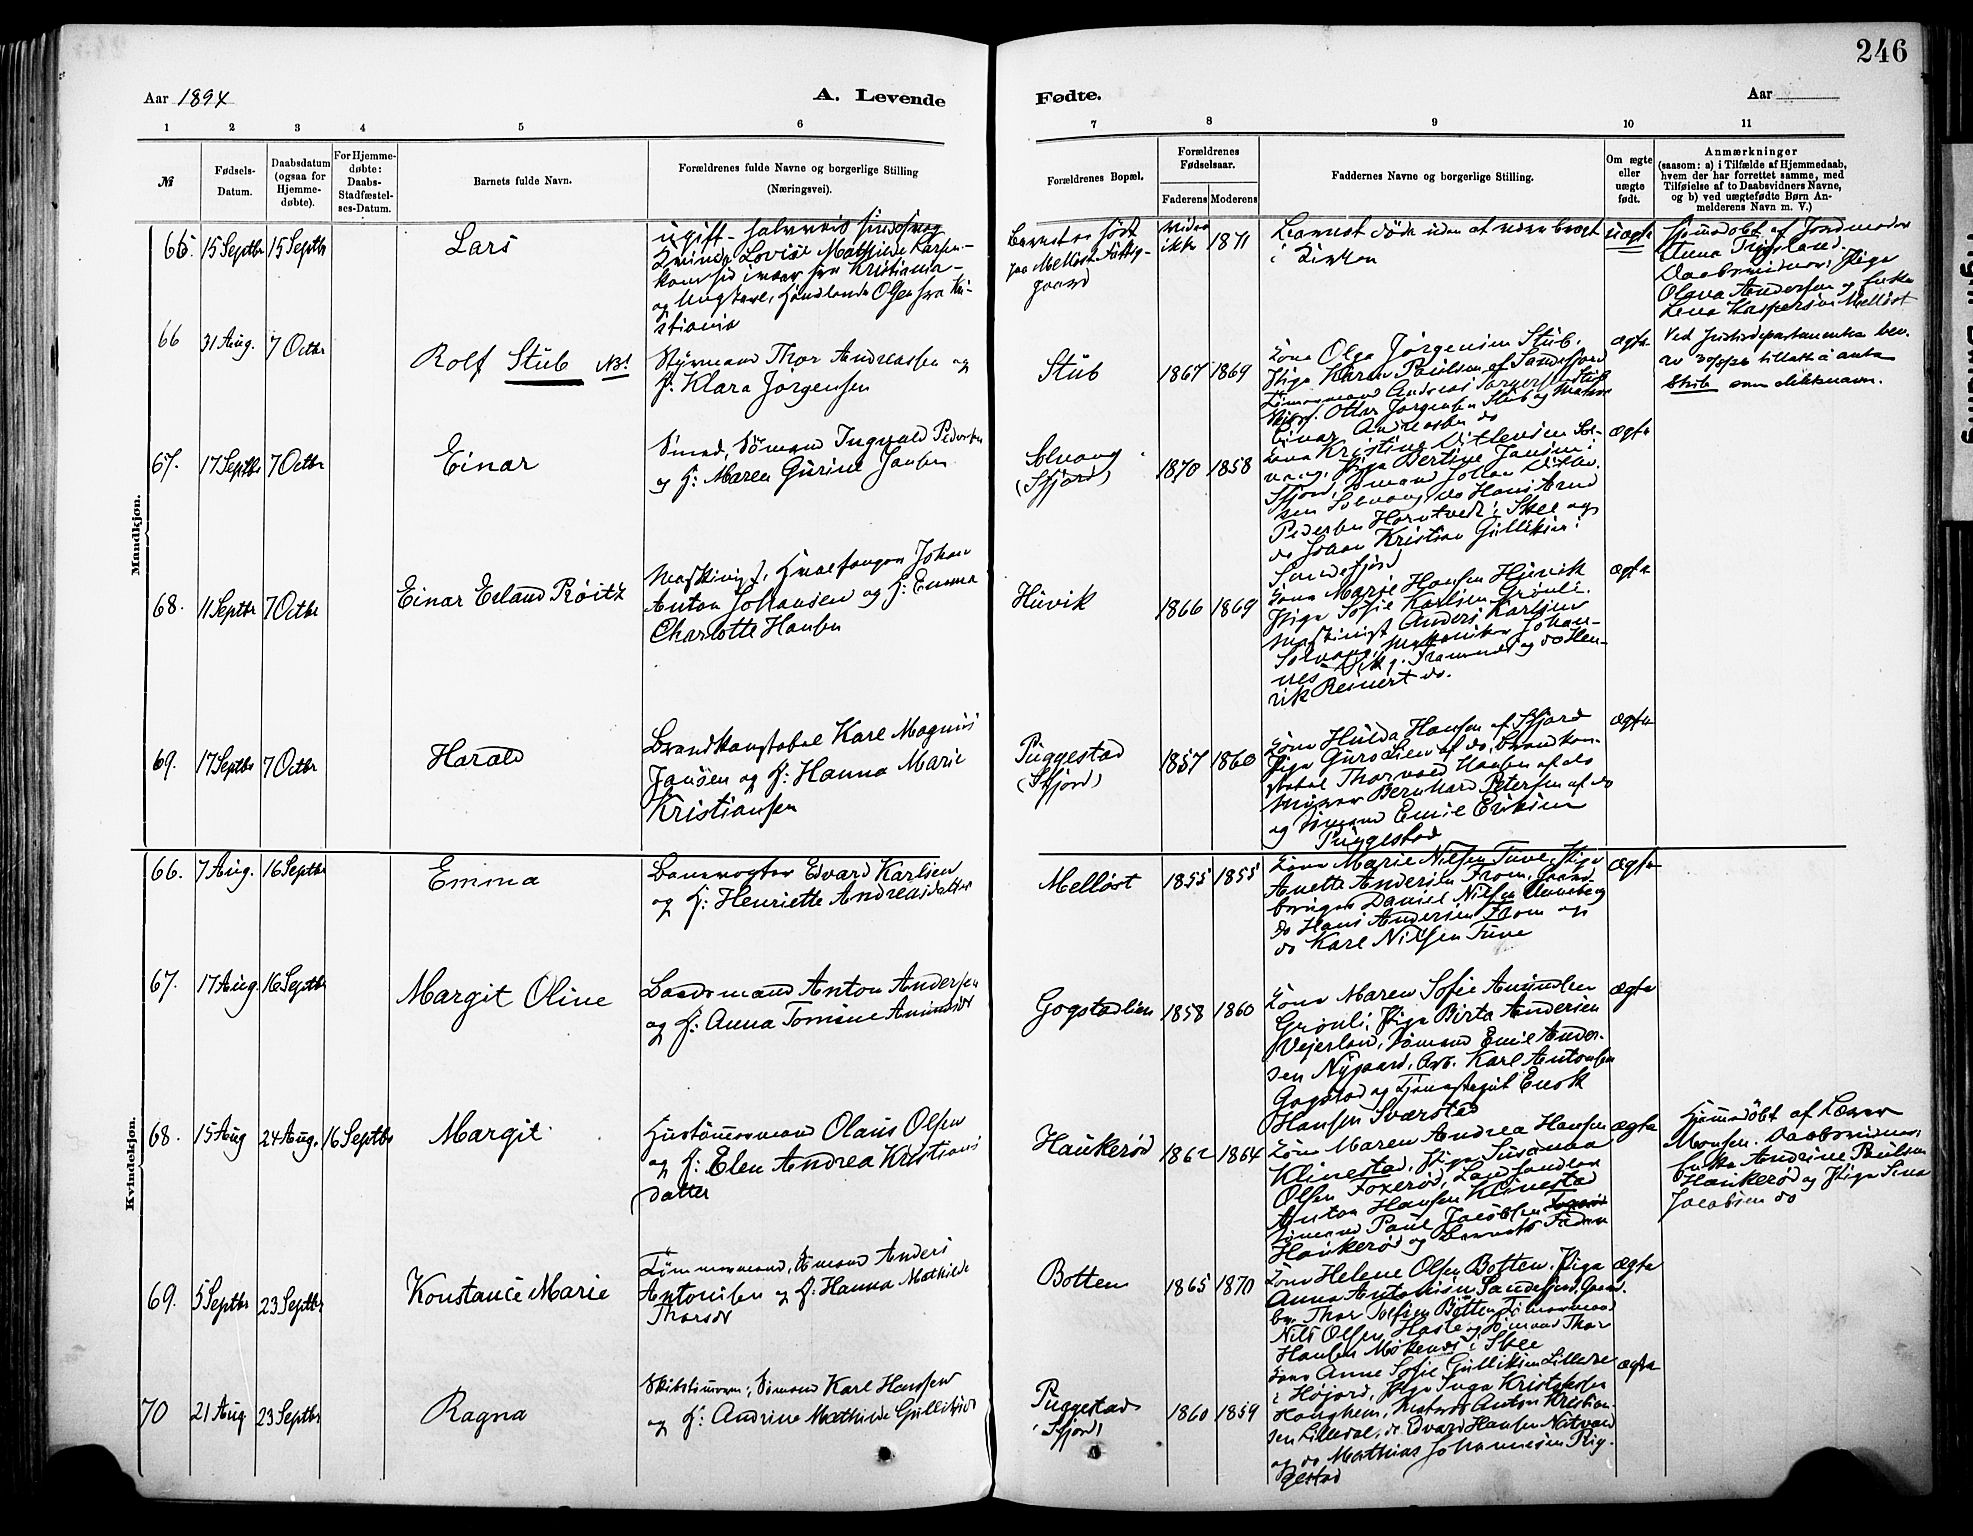 246
Aar 1894
A. Levende
Fødte.
Aar
1 2 3 4 5 6 7 8 9 10 11
№
Fødsels-
Datum.
Daabsdatum
(ogsaa for
Hjemme-
døbte).
For Hjemme-
døbte:
Daabs-
Stadfæstel-
ses-Datum.
Barnets fulde Navn.
Forældrenes fulde Navne og borgerlige Stilling
(Næringsvei).
Forældrenes Bopæl.
Forældrenes
Fødselsaar.
Faderens Moderens
Faddernes Navne og borgerlige Stilling.
Om ægte
eller
uægte
født.
Anmærkninger
(saasom: a) i Tilfælde af Hjemmedaab,
hvem der har forrettet samme, med
Tilføielse af to Daabsvidners Navne,
og b) ved uægtefødte Børn An-
melderens Navn m. V.)
Mandkjøn.
65. 15 Septbr 15 Septbr
Lars
Kvinde Lovise Mathilde Larsen
Kristiania
og Ungkarl, Olsen fra Kri-
stiania
Barnet er født
paa Melløst Fattig-
gaard
vides
ikke
1871
Barnet døde uden at være bragt
i Kirken
uægte
Hjemmedøbt af Jordmoder
Anna
Daabsvidner: Pige
Olava Andersen og Enke
Lena Kaspersen Melløst
66 31 Aug. 7 Octbr
Rolf Stub NB!
Styrmand Thor Andreassen og
H: Klara Jørgensen
Stub
1867 1869
Kone Olga Jørgensen Stub.
Pige Karen Paulsen af Sandefjord
Tømmermand Andreas Jørgensen Stub
Ottar Jørgensen Stub og Matros
Einar Andreassen do
ægte
Ved Justisdepartementets bev.
tilladt å anta
Stub som slektsnavn.
67. 17 Septbr 7 Octbr
Einar
Smed, Sømand Ingvald Pedersen
og H: Maren Gurine Jansen
Solvang
(Sfjord)
1870 1858
Kone Kristine Ditlevsen Sol-
vang, Pige Bertine Jansen i
Sfjord, Sømand Johan Ditlev-
sen Solvang, do Hans Arnd
Pedersen Horntvedt i Skee og
do Johan Kristian Gulliksen i
Sandefjord
ægte
68. 11 Septbr 7 Octbr
Einar Erland Röitz
Maskinist, Hvalfanger Johan
Anton Johansen og H: Emma
Charlotte Hansen
Huvik
1866 1869
Kone Marie Hansen Huvik
Pige Sofie Karlsen Grønli.
Maskinist Anders Karlsen
Solvang, Johan-
nes og do Hen-
rik Reinert do.
ægte
69. 17 Septbr 7 Octbr
Harald
Brandkonstabel Karl Magnus
Jansen og H: Hanna Marie
Kristiansen
Puggestad
(Sfjord)
1857 1860
Kone Hulda Hansen af Sfjord
Pige af do, Brandkon-
stabel Thorvald Hansen af do
Murer Bernhard Petersen af do
og Sømand Emil Eriksen
Puggestad
ægte
Kvindekjøn.
66. 7 Aug. 16 Septbr
Emma
Banevogter Edvard Karlsen
og H: Henriette Andreasdatter
Melløst
1855 1855
Kone Marie Nilsen Tuve, Pige
Anette Andersen From, Gaard-
bruger Daniel Nilsen Unneberg
do Hans Andersen From og
do Karl Nilsen Tuve
ægte
67. 17 Aug. 16 Septbr
Margit Oline
Baadsmand Anton Andersen
og H: Anna Tomine Amundsdr
Gogstadlien
1858 1860
Kone Maren Sofie Amundsen
Grønli, Pige Berta Andersen
Vejerland, Sømand Emil Ander-
sen Nygaard, Arb. Karl Antonsen
Gogstad og Tjenestegut Enok
Hansen Sværstad
ægte
68. 15 Aug 24 Aug. 16 Septbr
Margit
Hustømmermand Olaus Olsen
og H: Elen Andrea Kristians
datter
Haukerød
1862 1864
Kone Maren Andrea Hansen
Klinestad, Pige Susanna
Olsen Foxerød, Landhandler
Anton Hansen Klinestad
Sømand Paul Jacobsen
Haukerød og Barnets Fader
ægte
Hjemmedøbt af Lærer
Monsen. Daabsvidner:
Enke Andrine Paulsen
Haukerød og Pige Lina
Jacobsen do
69. 5 Septbr 23 Septbr
Konstance Marie
Tømmermand, Sømand Anders
Antonisen og H: Hanna Mathilde
Thorsdr
Botten
1865 1870
Kone Helene Olsen Botten, Pige
Anna Antonisen Sandefjord, Gaard-
br. Thor Botten, Tømmermand
Nils Olsen Hasle og Sømand Thor
Hansen i Skee
ægte
70 21 Aug 23 Septbr
Ragna
Skibstømrer, Sømand Karl Hansen
og H: Andrine Mathilde Gulliksdr
Puggestad
(Sfjord)
1860 1859
Kone Anne Sofie Gulliksen Lilledal
i Højord, Pige Inga Kristoffersen
Haughem, Matros Anton Kristian-
sen Lilledal, do Edvard Hansen
og do Mathias Johannesen Pug-
gestad
ægte